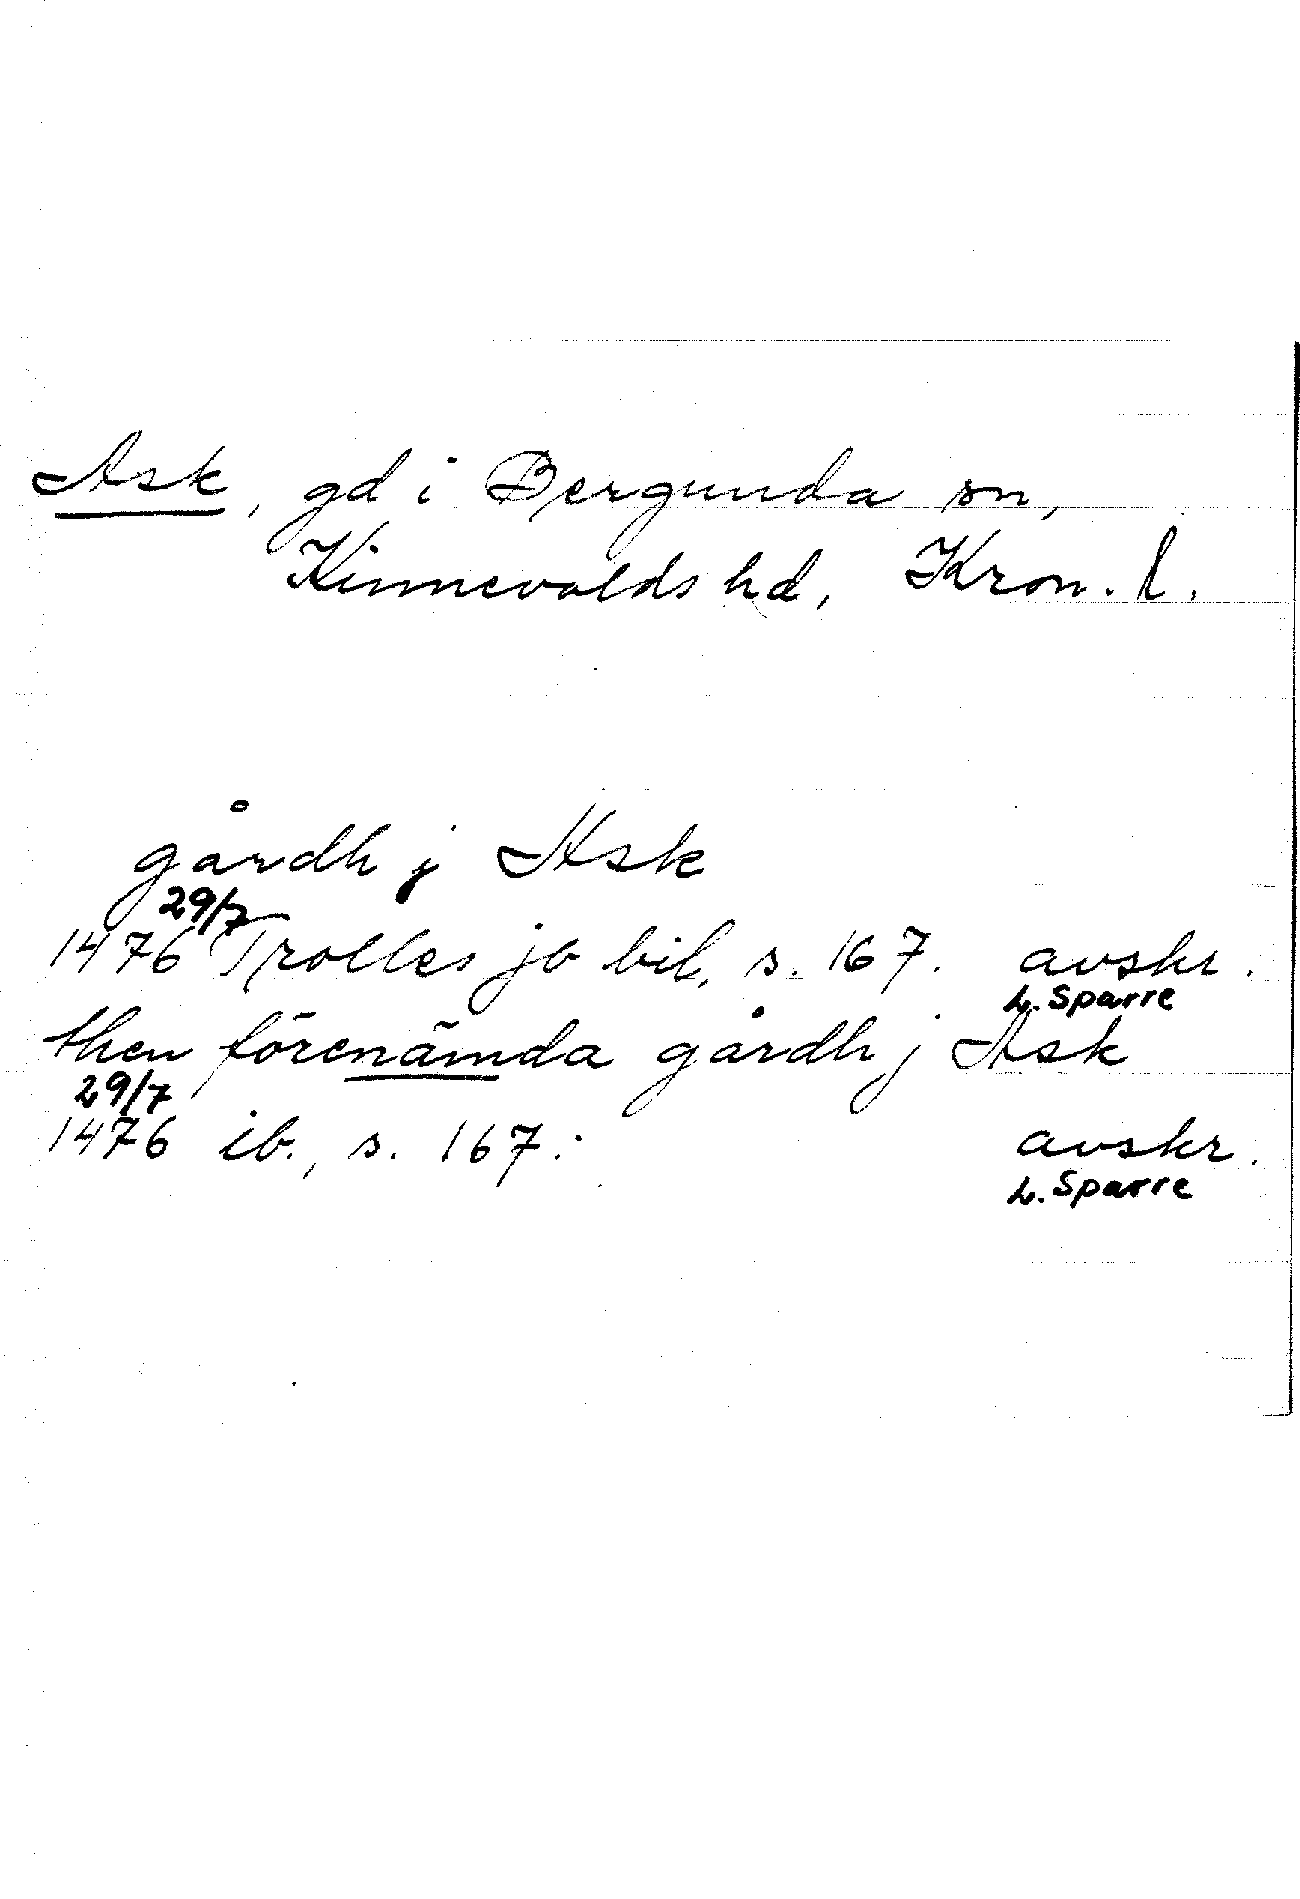 Ask, gd i Bergunda sn,
Kinnevalds hd, Kron. l.
gårdh j Ask
29/7
1476 Trolles jb bil, s. 167. avskr.
L. Sparre
then förenämda gårdh j Ask
29/7
1476 ib., s. 167. avskr.
L. Sparre